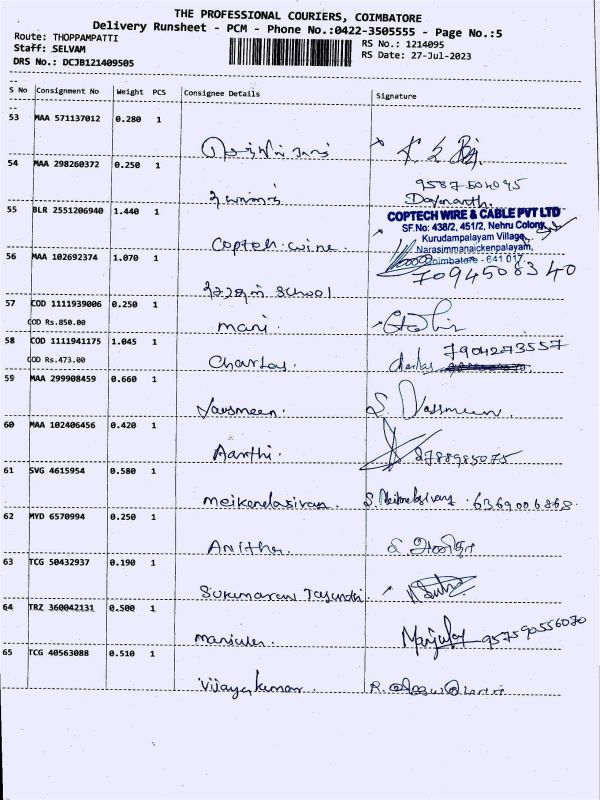 THE PROFESSIONAL COURIERS, COIMBATORE
Delivery Runsheet - PCM - Phone No.:0422-3505555 - Page No.:5
Route: THOPPAMPATTI
RS No.: 1214095
Staff: SELVAM
RS Date: 27-Jul-2023
DRS No.: DCJB121409505
S No Consignment No Weight PCS Consignee Details Signature
53 MAA 571137012 0.280 1
54 MAA 298260372 0.250 1
Dayananth.
55 BLR 2551206940 1.440 1
COPTECH WIRE & CABLE PVT LTD
SF.No: 438/2, 451/2, Nehru Colony,
Kurudampalayam Village,
Narasimmanaickenpalayam,
Coimbatore - 641 017.
Coptech wire.
56 MAA 102692374 1.070 1
7094508340
School
57 COD 1111939006 0.250 1
COD Rs.850.00
mani
58 COD 1111941175 1.045 1
7904273557
COD Rs.473.00
Charlas. charlas
59 MAA 299908459 0.660 1
Yasmeen. S. Yassmeen
60 MAA 102406456 0.420 1
Aarthi.
61 SVG 4615954 0.580 1
Meikandasivan. S. Meikandasivan 6369006868
62 MYD 6570994 0.250 1
Anitha. அனிதா
63 TCG 50432937 0.190 1
Sukumaran
64 TRZ 360042131 0.500 1
Manjula 957590556070
65 TCG 40563088 0.510 1
Vijayakumar.